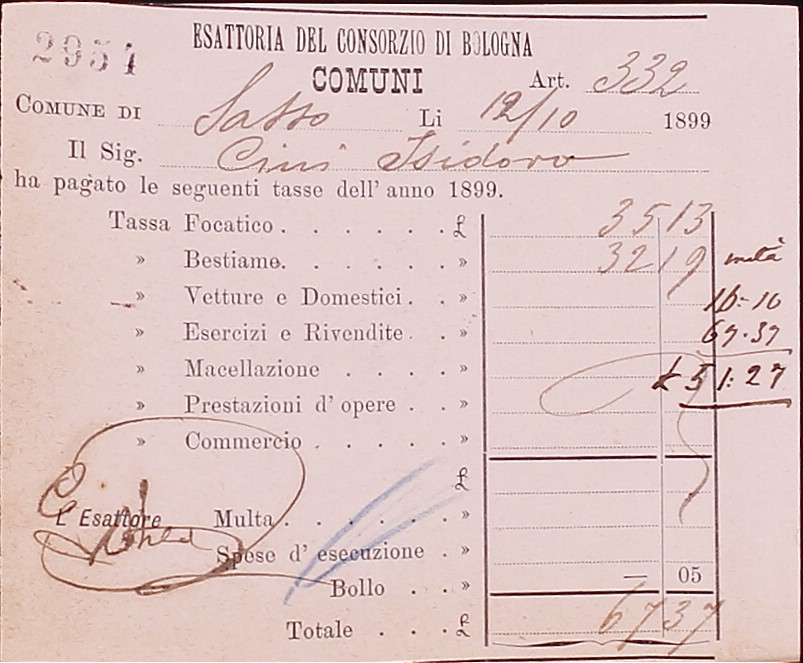 2954
ESATTORIA DEL CONSORZIO DI BOLOGNA
COMUNI
Art. 332
COMUNE DI Sasso Li 12/10 1899
Il Sig. Cini Isidoro
ha pagato le seguenti tasse dell' anno 1899.
Tassa Focatico . . . . . . £ 35 13
» Bestiame. . . . . . » 32 19 metà
» Vetture e Domestici . . » 16:10
» Esercizi e Rivendite . . » 67.37
» Macellazione . . . . » £ 51:27
» Prestazioni d' opere . . »
» Commercio . . . . . »
£
L' Esattore Multa . . . . . . »
Spese d' esecuzione . »
Bollo . . » — 05
Totale . . . £ 67 37